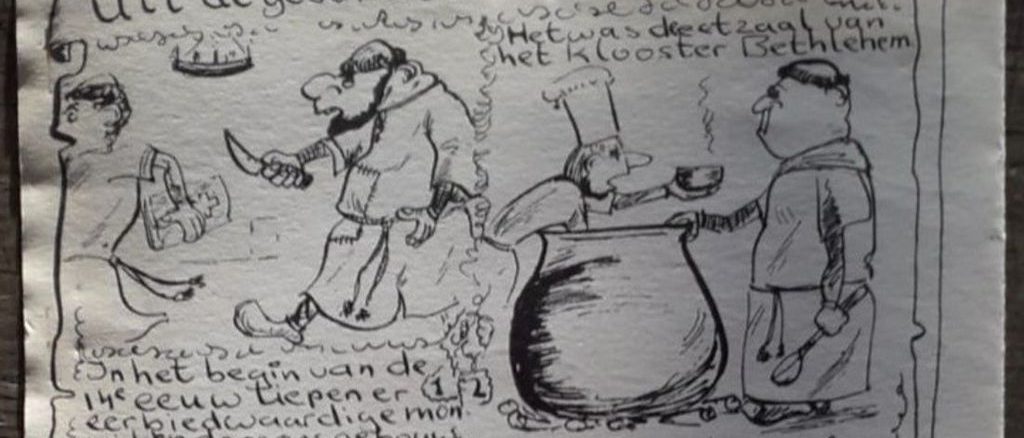 Uit de
Het was de eetzaal van
het Klooster Bethlehem
In het begin van de
14e eeuw liepen er
eerbiedwaardige mon
1 2